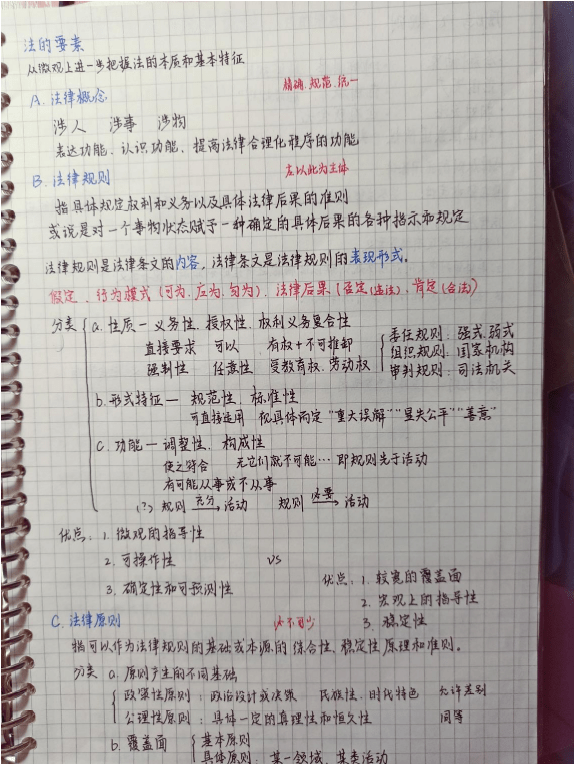 法的要素
从微观上进一步把握法的本质和基本特征
A. 法律概念 精确.规范.统一
涉人 涉事 涉物
表达功能、认识功能、提高法律合理化程序的功能
B. 法律规则 左以此为主体
指具体规定权利和义务以及具体法律后果的准则
或说是对一个事物状态赋于一种确定的具体后果的各种指示和规定
法律规则是法律条文的内容，法律条文是法律规则的表现形式。
假定、行为模式（可为、应为、勿为）、法律后果（否定(违法)、肯定(合法)
分类 a. 性质－义务性、授权性、权利义务复合性
直接要求 可以 有权+不可推卸
强制性 任意性 受教育权、劳动权
委任规则：强式、弱式
组织规则：国家机构
审判规则：司法机关
b. 形式特征— 规范性、标准性
可直接适用 视具体而定 “重大误解”“显失公平”“善意”
c. 功能－调整性、构成性
使之符合 无它们就不可能… 即规则先于活动
有可能从事或不从事
(?) 规则 充分→ 活动 规则 必要→ 活动
优点：1. 微观的指导性
2. 可操作性 VS
3. 确定性和可预测性
优点：1. 较宽的覆盖面
2. 宏观上的指导性
3. 稳定性
C. 法律原则 必不可少
指可以作为法律规则的基础或本源的综合性、稳定性原理和准则。
分类 a. 原则产生的不同基础
政策性原则：政治设计或决策 民族性、时代特色 允许差别
公理性原则：具体一定的真理性和恒久性 同等
b. 覆盖面 基本原则
具体原则：某一领域、某类活动